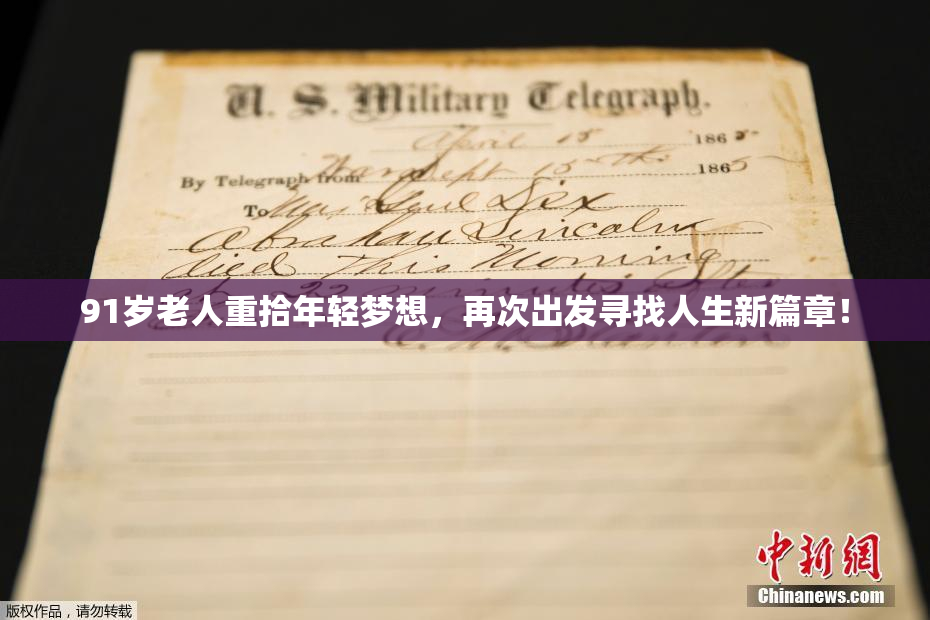 U. S. Military Telegraph.
April 15 1865
By Telegraph from War Dept 15th 1865
To Maj Genl Dix
Abraham Lincoln
died This Morning
at 22 minutes after
91岁老人重拾年轻梦想，再次出发寻找人生新篇章！
E. M. Stanton
中新网
Chinanews.com
版权作品，请勿转载